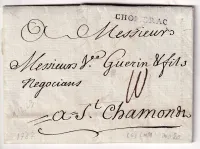 A Messieurs
Messieurs V.ve Guerin & fils
Negocians
10
a S.t Chamond